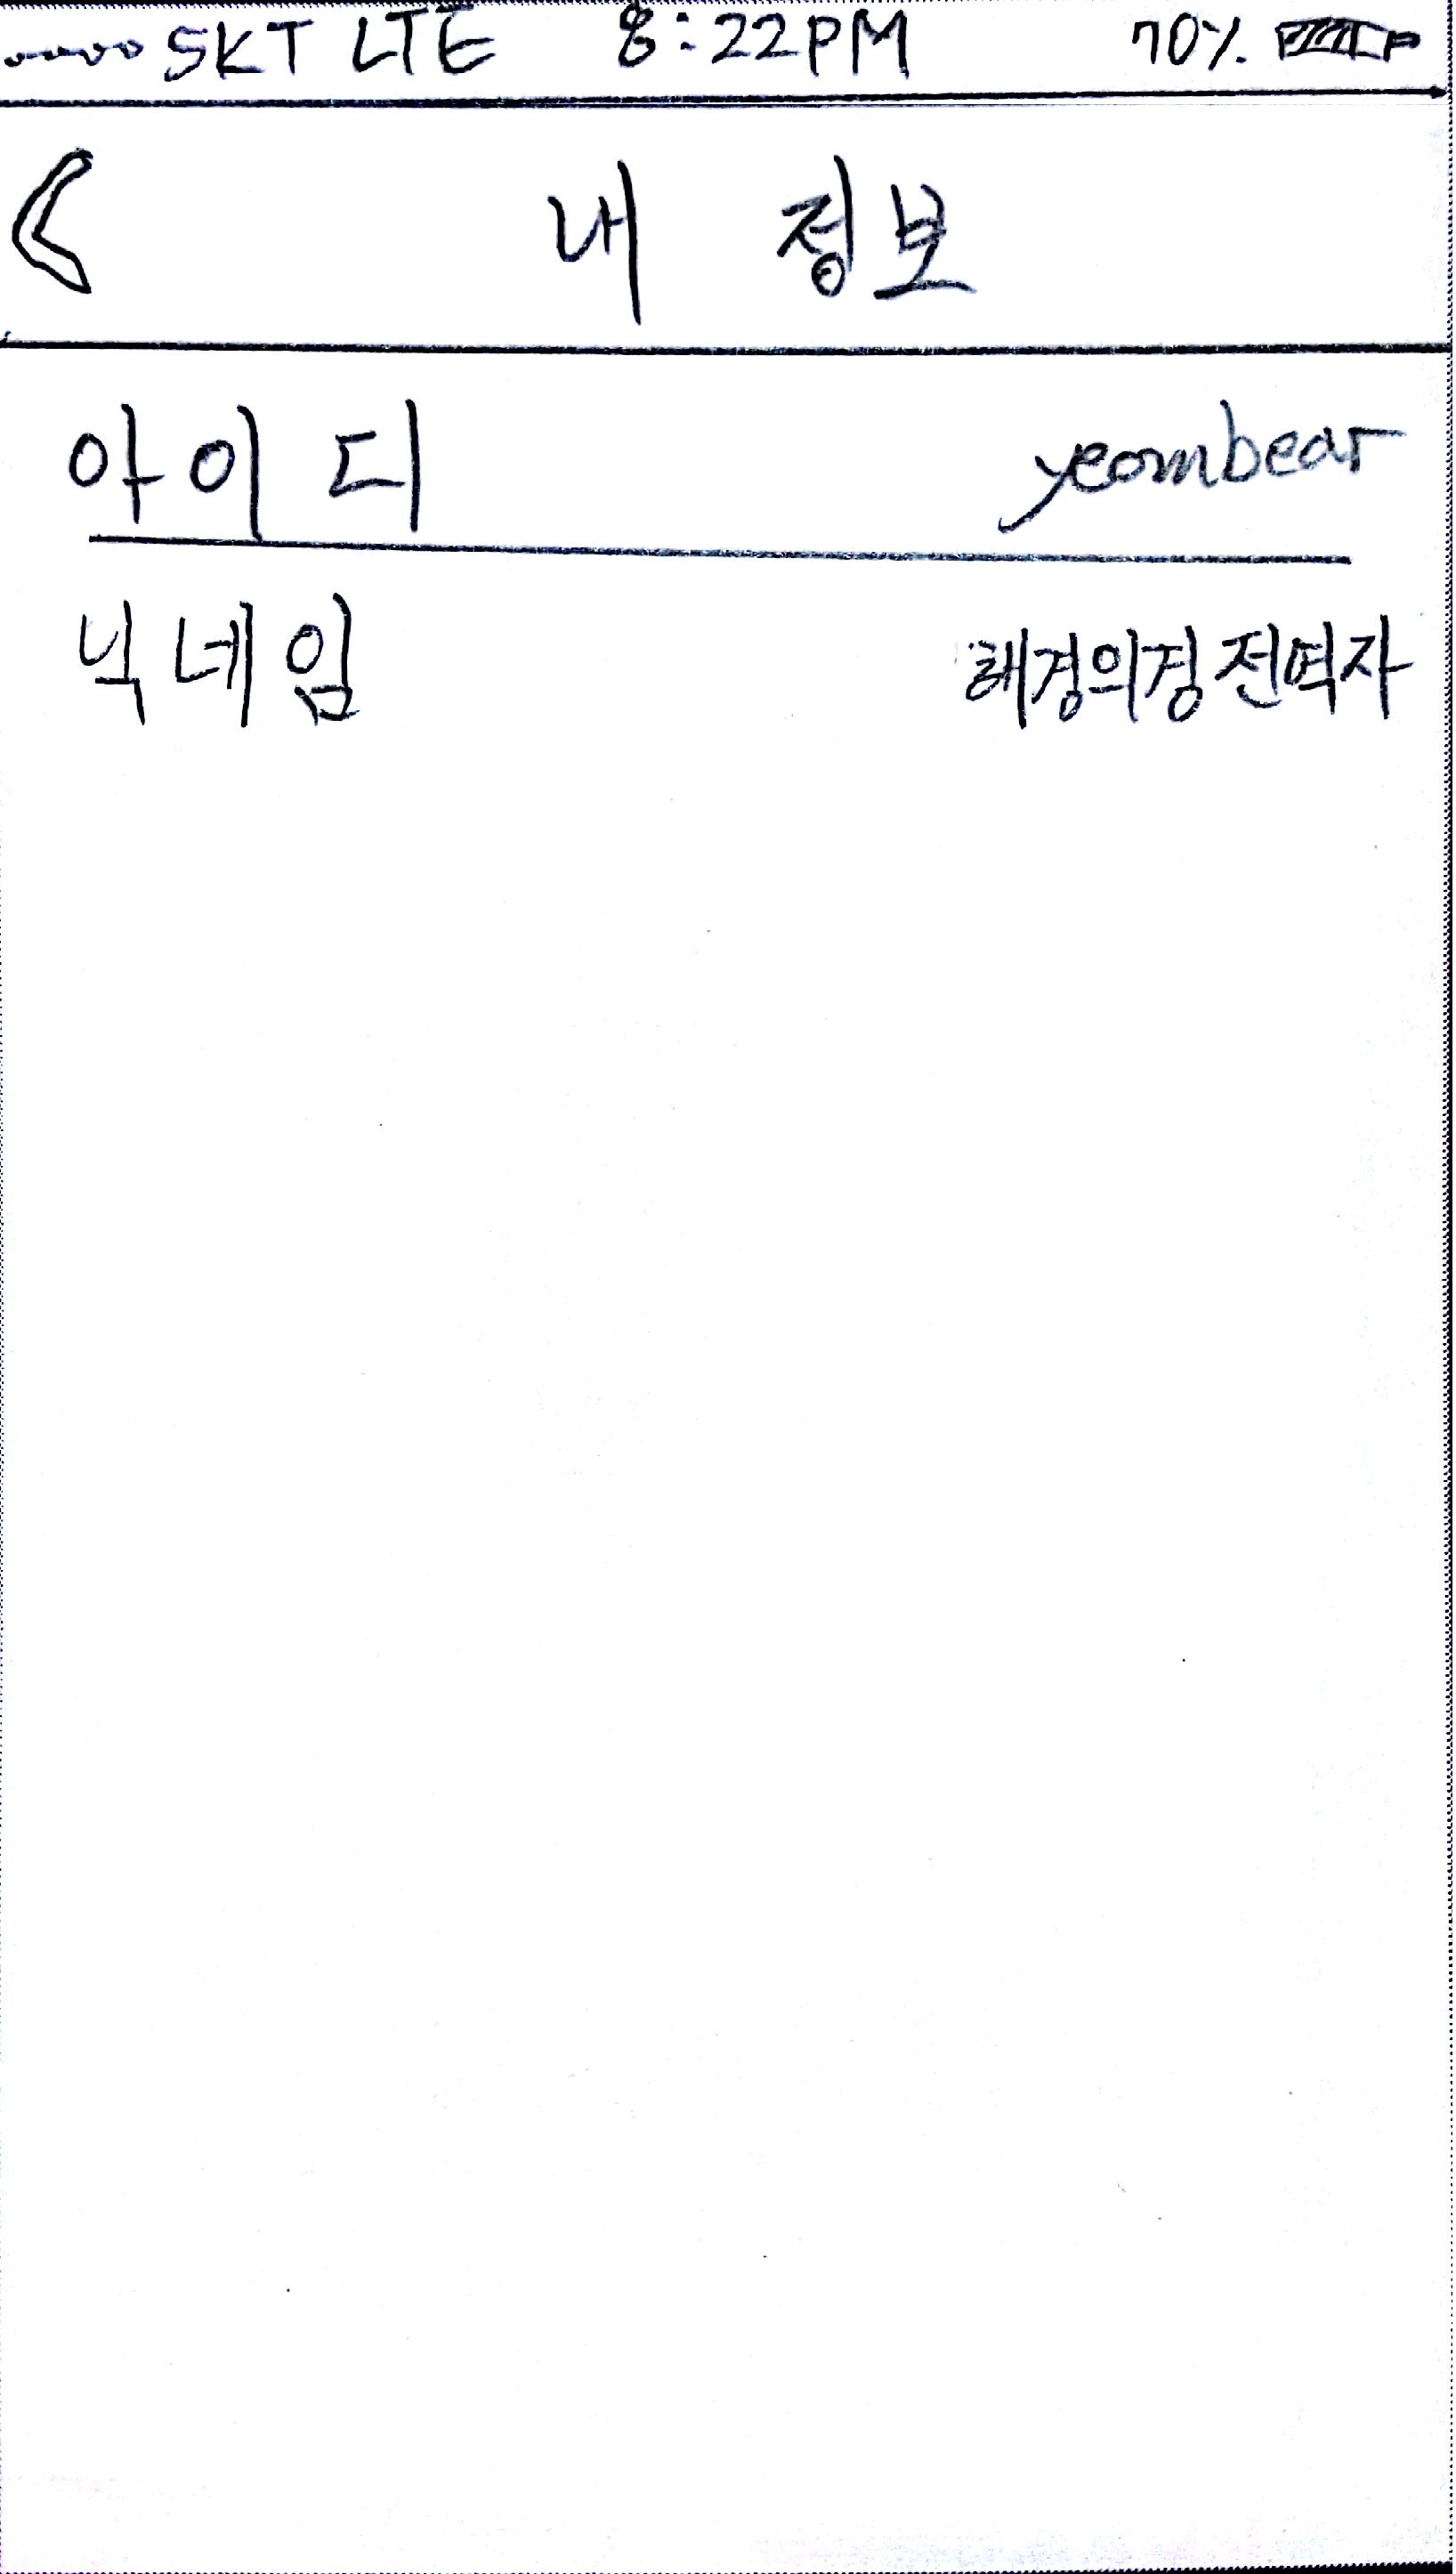 SKT LTE 8:22PM 70%
내 정보
아이디 yeombear
닉네임 해경의경전역자